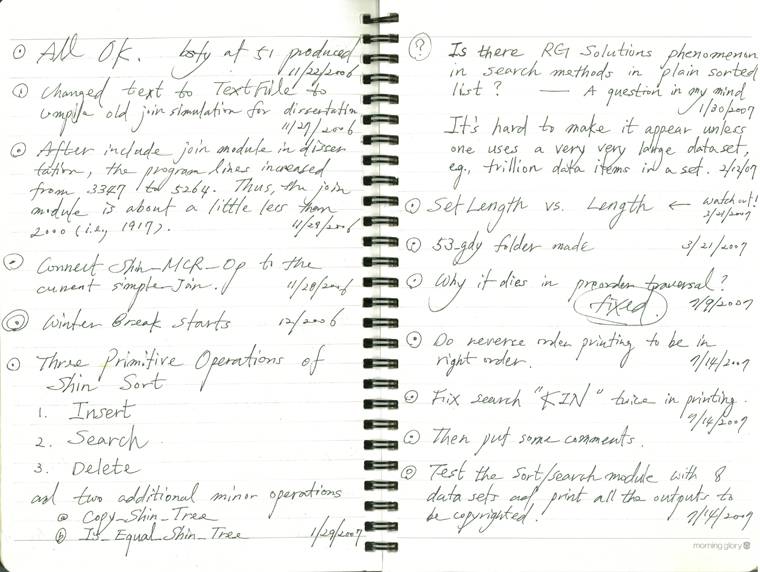 All OK. bsfy at 51 produced
11/22/2006
Changed text to TextFile to
compile old join simulation for dissertation
11/27/2006
After include join module in disser
tation, the program lines increased
from 3347 to 5264. Thus, the join
module is about a little less than
2000 (i.e., 1917). 11/29/2006
Connect Shin_MCR_Op to the
current simple Join. 11/28/2006
Winter Break starts 12/2006
Three Primitive Operations of
Shin Sort
1. Insert
2. Search
3. Delete
and two additional minor operations
ⓐ Copy_Shin_Tree
ⓑ Is_Equal_Shin_Tree 1/29/2007
? Is there RG Solutions phenomenon
in search methods in plain sorted
list? — A question in my mind
1/30/2007
It's hard to make it appear unless
one uses a very very large dataset,
eg., trillion data items in a set. 2/12/07
SetLength vs. Length ← watch out!
2/21/2007
53_gdy folder made 3/21/2007
Why it dies in preorder traversal?
fixed. 7/9/2007
Do reverse order printing to be in
right order. 7/14/2007
Fiix search "KIN" twice in printing.
7/14/2007
Then put some comments.
Test the Sort/search module with 8
data sets and print all the outputs to
be copyrighted. 7/14/2007
morning glory